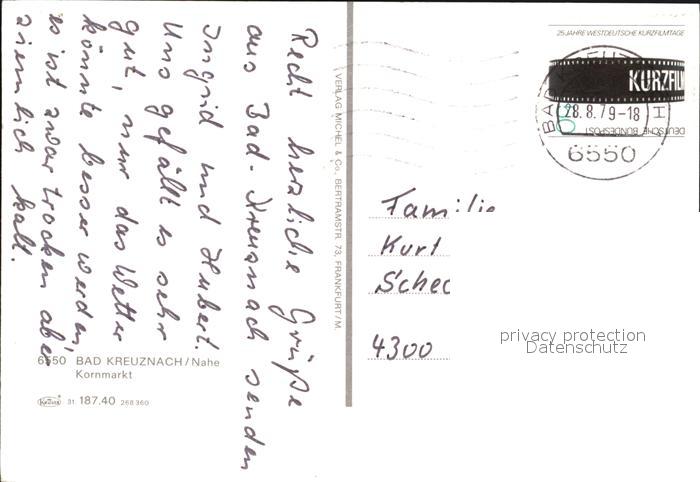 Recht herzliche Grüße
aus Bad-Kreuznach senden
Ingrid und Hubert.
Uns gefällt es sehr
gut, nur das Wetter
könnte besser werden,
es ist zwar trocken aber
ziemlich kalt.
6550 BAD KREUZNACH/Nahe
Kornmarkt
Krüger 31 187.40 268360
VERLAG MICHEL & Co., BERTRAMSTR. 73, FRANKFURT/M.
25 JAHRE WESTDEUTSCHE KURZFILMTAGE
KURZFILM
DEUTSCHE BUNDESPOST
BAD
28.8.79-18
H
6550
Familie
Kurt
Schec
4300
privacy protection
Datenschutz